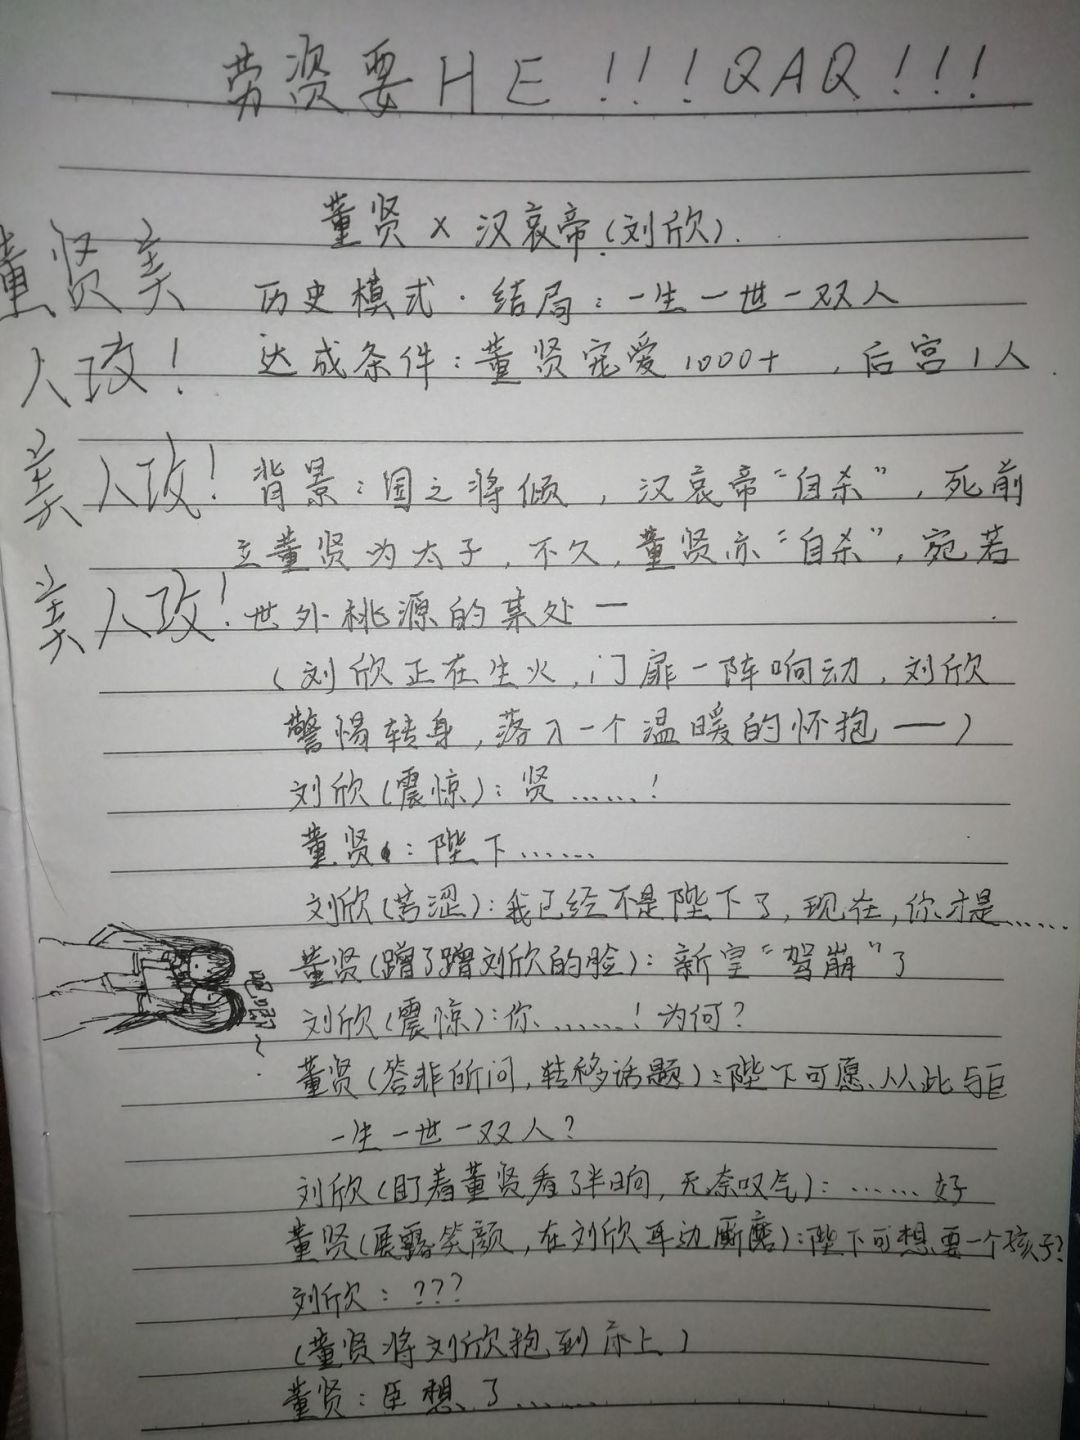 劳资要HE!!!QAQ!!!
董贤×汉哀帝(刘欣).
历史模式·结局:一生一世一双人
达成条件:董贤宠爱1000+,后宫1人.
董贤美
人攻!
美人攻!
美人攻!
背景:国之将倾,汉哀帝“自杀”,死前
立董贤为太子,不久,董贤亦“自杀”,宛若
世外桃源的某处一
(刘欣正在生火,门扉一阵响动,刘欣
警惕转身,落入一个温暖的怀抱——)
刘欣(震惊):贤……!
董贤:陛下……
刘欣(苦涩):我已经不是陛下了,现在,你才是……
董贤(蹭了蹭刘欣的脸):新皇“驾崩”了
刘欣(震惊):你……!为何?
董贤(答非所问,转移话题):陛下可愿从此与臣
一生一世一双人?
刘欣(盯着董贤看了半晌,无奈叹气):……好
董贤(展露笑颜,在刘欣耳边厮磨):陛下可想要一个孩子?
刘欣:???
(董贤将刘欣抱到床上)
董贤:臣想了……